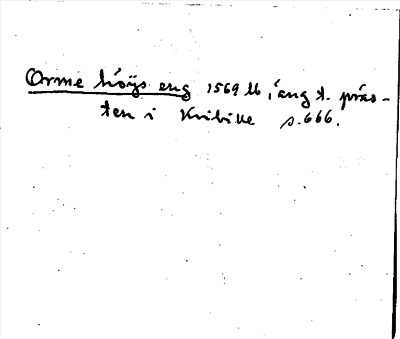 Orme höÿs eng 1569 lb, äng t. präs-
ten i Kvibille s. 666.